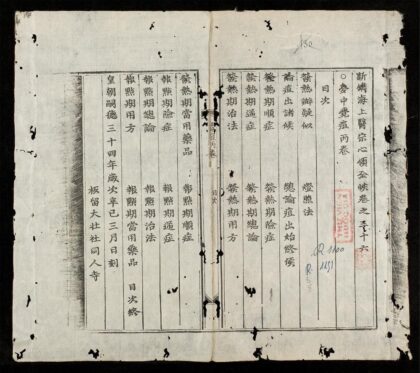 新鐫海上醫宗心領全帙卷之 十六
○夢中覺痘丙卷
目次
發熱辨疑似 燈照法
論痘出諸候 總論痘出始終候
發熱期順症 發熱期逆症
發熱期險症 發熱期總論
發熱期治法 發熱期用方
目次
發熱期當用藥品 報點期順症
報點期險症 報點期逆症
報點期總論 報點期治法
報點期用方 報點期當用藥品 目次終
皇朝嗣德三十四年歲次辛巳三月日刻
板留大壯社同人寺